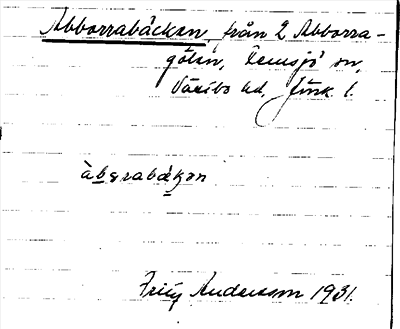 Abborrabäcken, från 2 Abborra-
gölen, Kemsjö sn,
Västbo hd, Jönk. l.
àbɘrabækɘn
Fritz Andersson 1931.